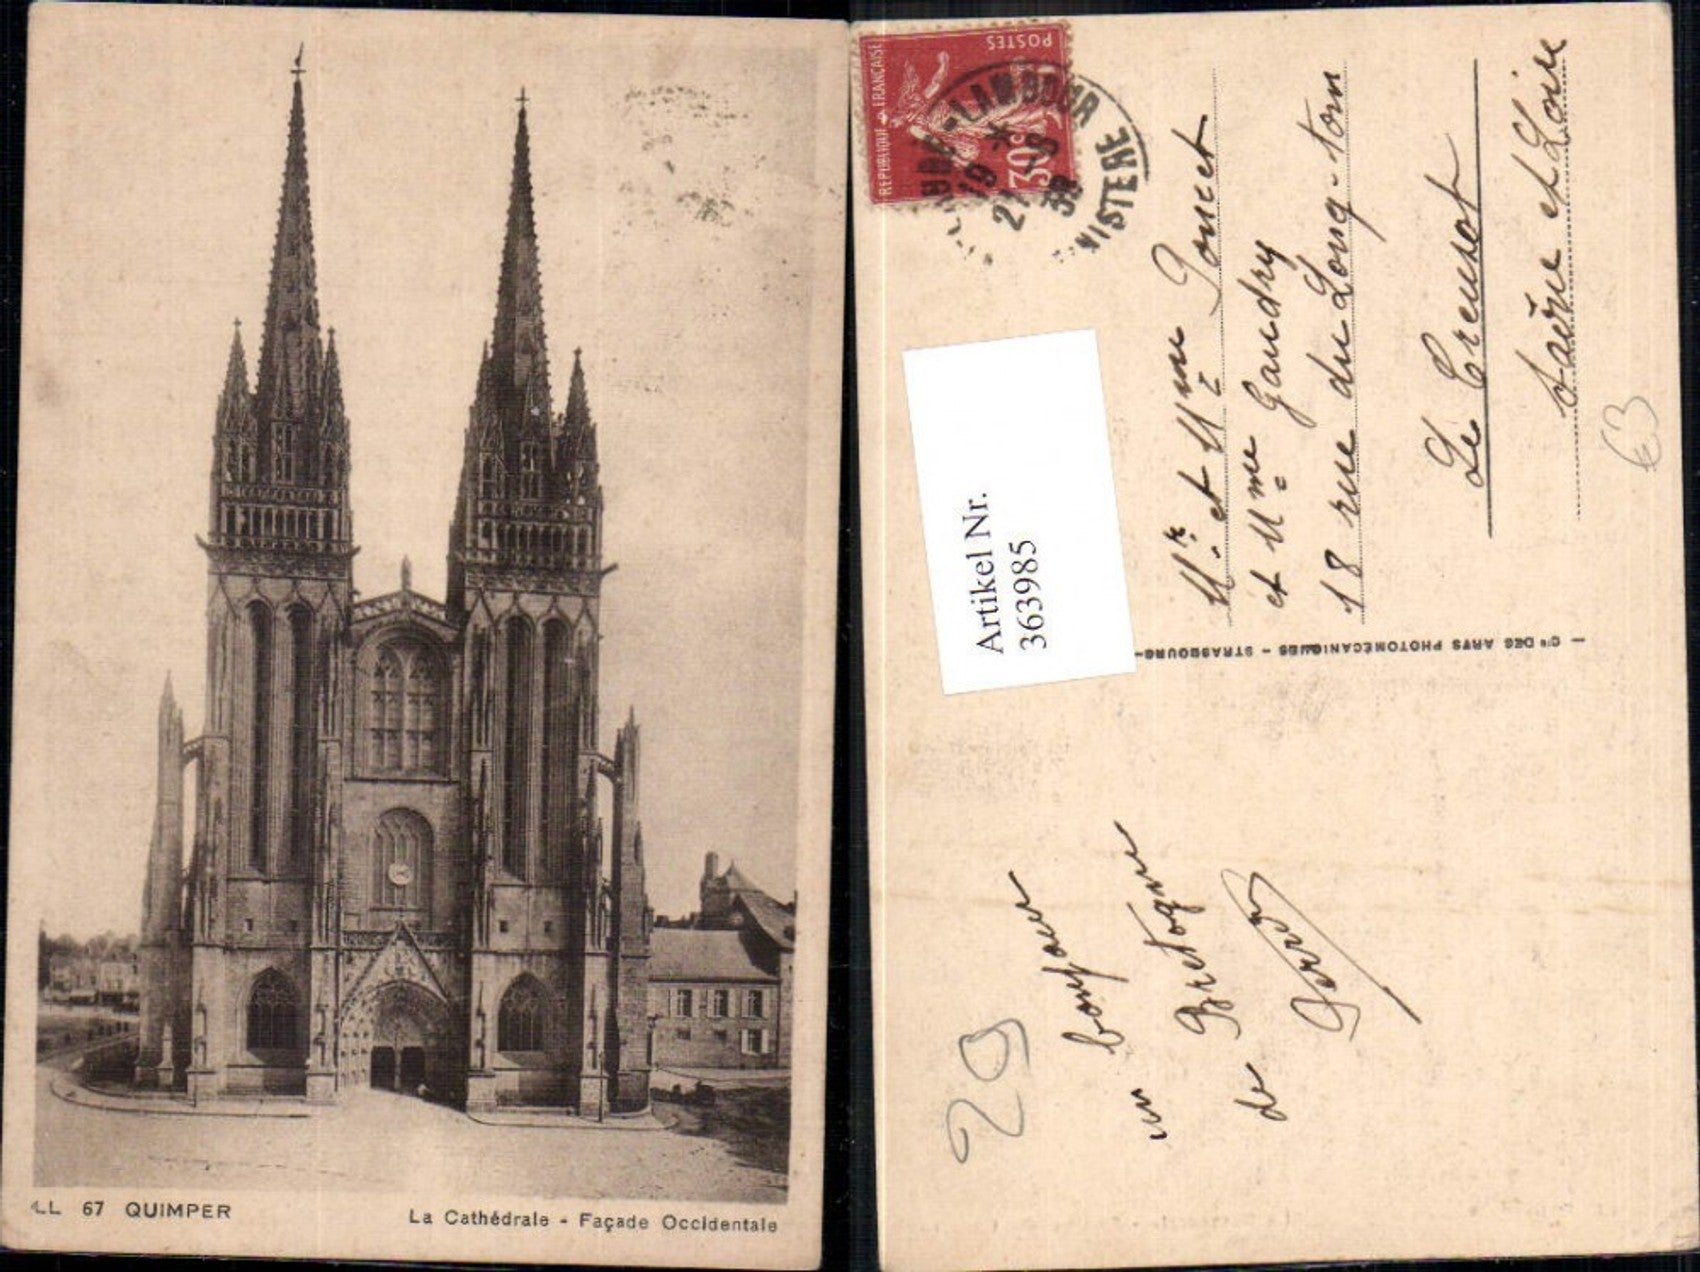 LL 67 QUIMPER
La Cathédrale - Façade Occidentale
POSTES
REPUBLIQUE FRANÇAISE
30c
LAMBOUR
19 *
38
Artikel Nr.
363985
Mr. et Mme Poncet
et Mme Gaudry
18 rue du Long-tom
Le Creusot
Saône et Loire
€3
Cie DES ARTS PHOTOMÉCANIQUES - STRASBOURG-
29
un bonjour
de Bretagne